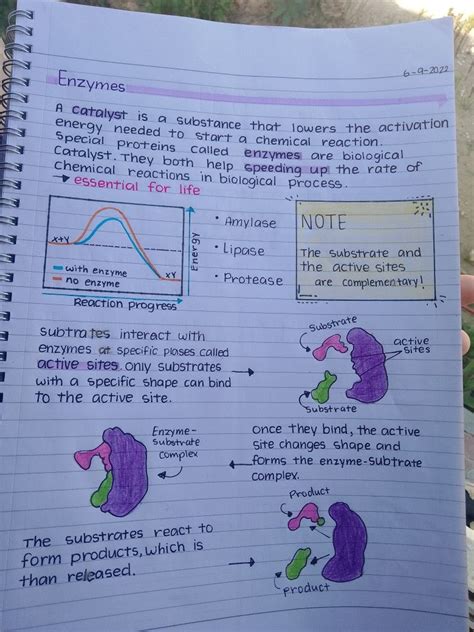 6-9-2022
Enzymes
A catalyst is a substance that lowers the activation
energy needed to start a chemical reaction.
Special proteins called enzymes are biological
catalyst. They both help speeding up the rate of
chemical reactions in biological process.
→ essential for life
X+Y
XY
with enzyme
no enzyme
Energy
Reaction progress
• Amylase
• Lipase
• Protease
NOTE
The substrate and
the active sites
are complementary!
Subtrates interact with
enzymes at specific plases called
active sites. only substrates
with a specific shape can bind
to the active site.
Substrate
active
sites
Substrate
Enzyme-
substrate
complex
Once they bind, the active
site changes shape and
forms the enzyme-subtrate
complex.
The substrates react to
form products, which is
than released.
Product
product